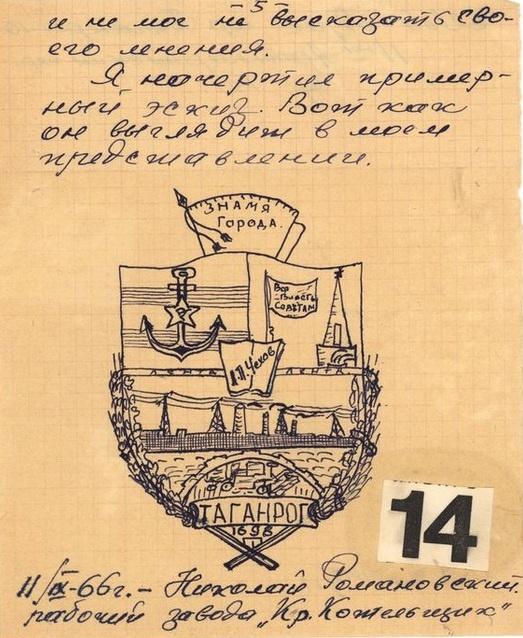 - 5 -
и не мог не высказать сво-
его мнения.
Я начертил пример-
ный эскиз. Вот как
он выглядит в моем
представлении.
ЗНАМЯ
Города.
Вся
Власть
Советам
А.П.Чехов
ЛЕНТА ЛЕНТА
ТАГАНРОГ
1698
14
11/IX-66г. - Николай Романовский.
рабочий завода „Кр. Котельщик"